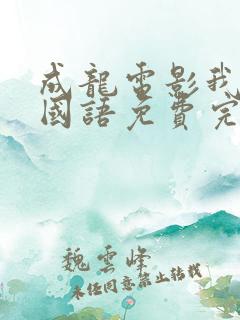 成龍電影我
國語免費完
魏雲峰
未经同意禁止转载